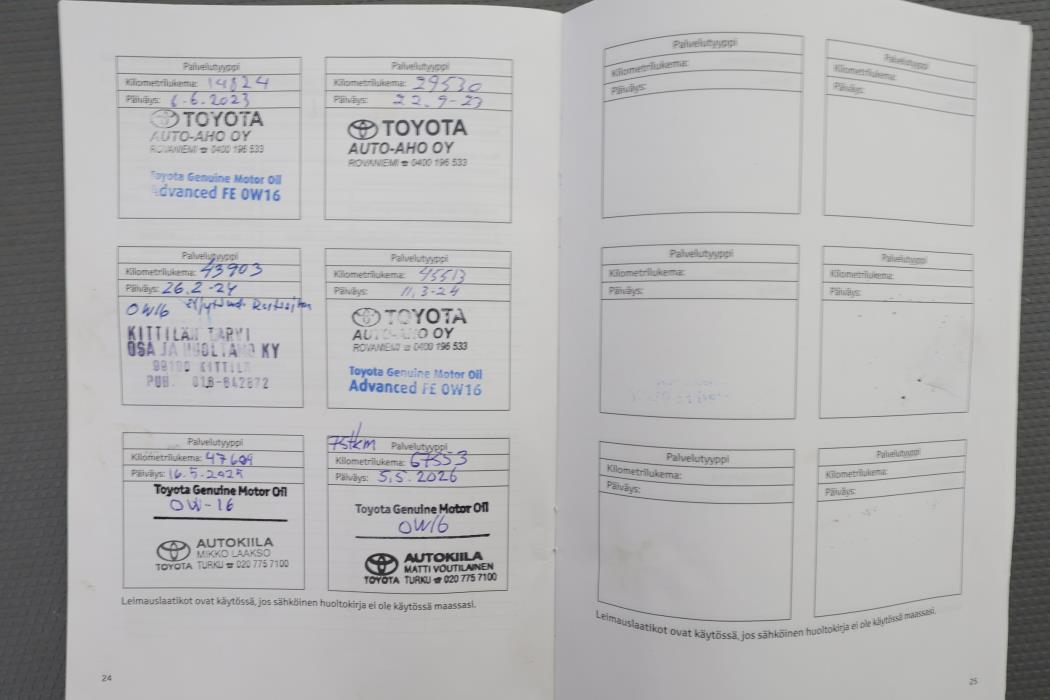 Palvelutyyppi
Kilometrilukema: 14824
Päiväys: 6.6.2023
TOYOTA
AUTO-AHO OY
ROVANIEMI ☎ 0400 196 533
Toyota Genuine Motor Oil
Advanced FE 0W16
Palvelutyyppi
Kilometrilukema: 29530
Päiväys: 22.9-23
TOYOTA
AUTO-AHO OY
ROVANIEMI ☎ 0400 196 533
Palvelutyyppi
Kilometrilukema: 43903
Päiväys: 26.2-24
0W16
KITTILÄN TARVI
OSA JA HUOLTAMO KY
99100 KITTILÄ
PUH. 016-642872
Palvelutyyppi
Kilometrilukema: 45513
Päiväys: 11.3-24
TOYOTA
AUTO-AHO OY
ROVANIEMI ☎ 0400 196 533
Toyota Genuine Motor Oil
Advanced FE 0W16
Palvelutyyppi
Kilometrilukema: 47609
Päiväys: 16.5-2025
Toyota Genuine Motor Oil
0W-16
AUTOKIILA
MIKKO LAAKSO
TOYOTA TURKU ☎ 020 775 7100
75tkm Palvelutyyppi
Kilometrilukema: 67553
Päiväys: 5.5.2026
Toyota Genuine Motor Oil
0W16
AUTOKIILA
MATTI VOUTILAINEN
TOYOTA TURKU ☎ 020 775 7100
Leimauslaatikot ovat käytössä, jos sähköinen huoltokirja ei ole käytössä maassasi.
24
Palvelutyyppi
Kilometrilukema:
Päiväys:
Palvelutyyppi
Kilometrilukema:
Päiväys:
Palvelutyyppi
Kilometrilukema:
Päiväys:
Palvelutyyppi
Kilometrilukema:
Päiväys:
Palvelutyyppi
Kilometrilukema:
Päiväys:
Palvelutyyppi
Kilometrilukema:
Päiväys:
Leimauslaatikot ovat käytössä, jos sähköinen huoltokirja ei ole käytössä maassasi.
25